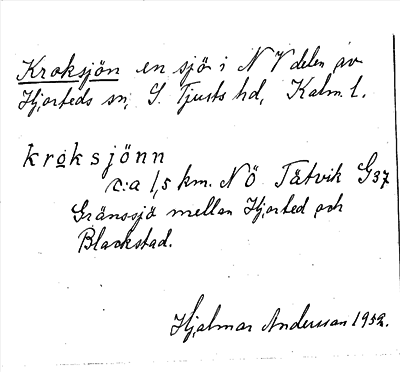 Kroksjön en sjö i NV delen av
Hjorteds sn, S. Tjusts hd, Kalm. l.
kroksjönn
c:a 1,5 km. NÖ Tåtvik G37
Gränssjö mellan Hjorted och
Blackstad.
Hjalmar Andersson 1932.